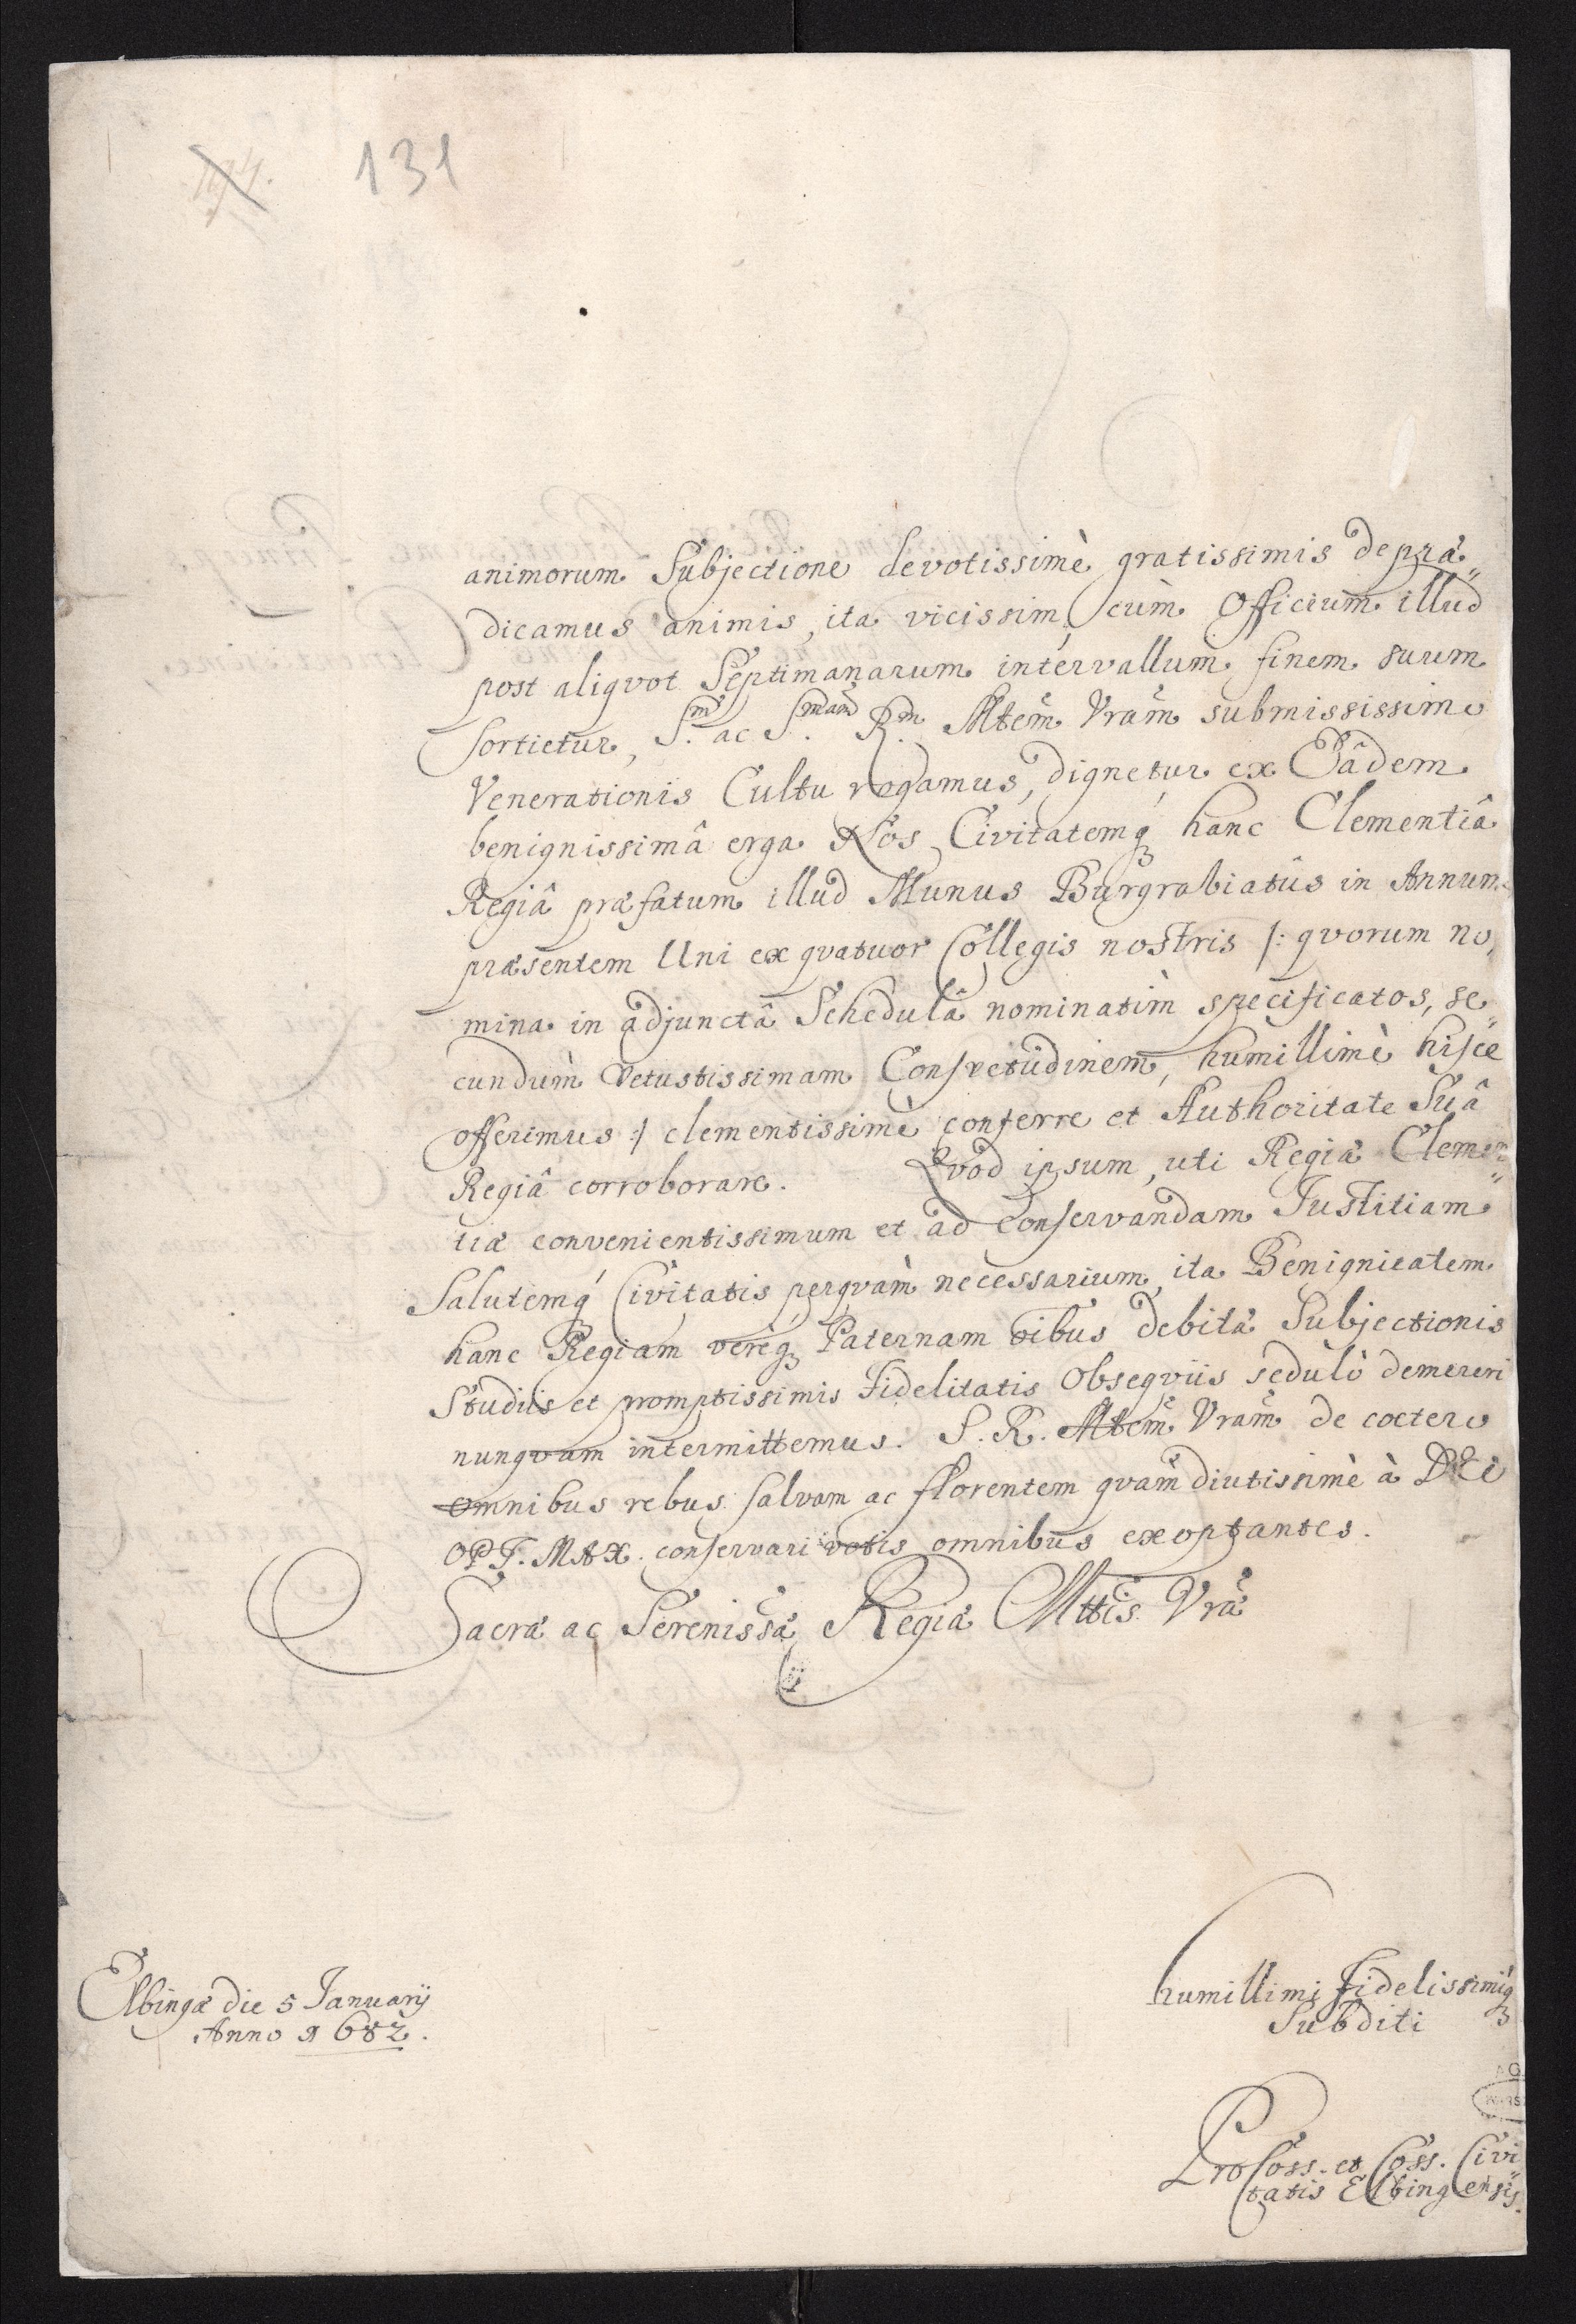 131
animorum Subjectione devotissimè gratissimis depræ„
dicamus animis, ita vicissim, cùm Officium illud
post aliqvot Septimanarum intervallum finem suum
sortietur, S.m ac S.mam R.m Mtem Vram submississimo
Venerationis Cultu rogamus, dignetur ex Eâdem
benignissimâ erga Nos Civitatemq́ hanc Clementiâ
Regiâ præfatum illud Munus Burgrabiatûs in Annum
præsentem Uni ex qvatuor Collegis nostris /: qvorum no„
mina in adjunctâ Schedulâ nominatìm specificatos, se„
cundùm Vetustissimam Consvetudinem, humillimè hisce
offerimus :/ clementissimè conferre et Authoritate Suâ
Regiâ corroborare. Qvod ipsum, uti Regiæ Clemen„
tiæ convenientissimum et ad Conservandam Justitiam
Salutemq́ Civitatis perqvàm necessarium, ita Benignitatem
hanc Regiam vereq; Paternam oibus debitæ Subjectionis
Studiis et promptissimis Fidelitatis Obseqviis sedulò demereri
nunqvam intermittemus. S. R. Mtem Vram de cœtero
omnibus rebus salvam ac florentem qvàm diutissimè à DEO
OPT. MAX. conservari votis omnibus exoptantes.
Sacræ ac Sereniss̃æ Regiæ Mttis Vræ
Elbingæ die 5 Januarÿ
Anno 1682.
humillimi Fidelissimiq́;
Subditi
ProCoss. et Coss. Civi„
tatis Elbingensis.